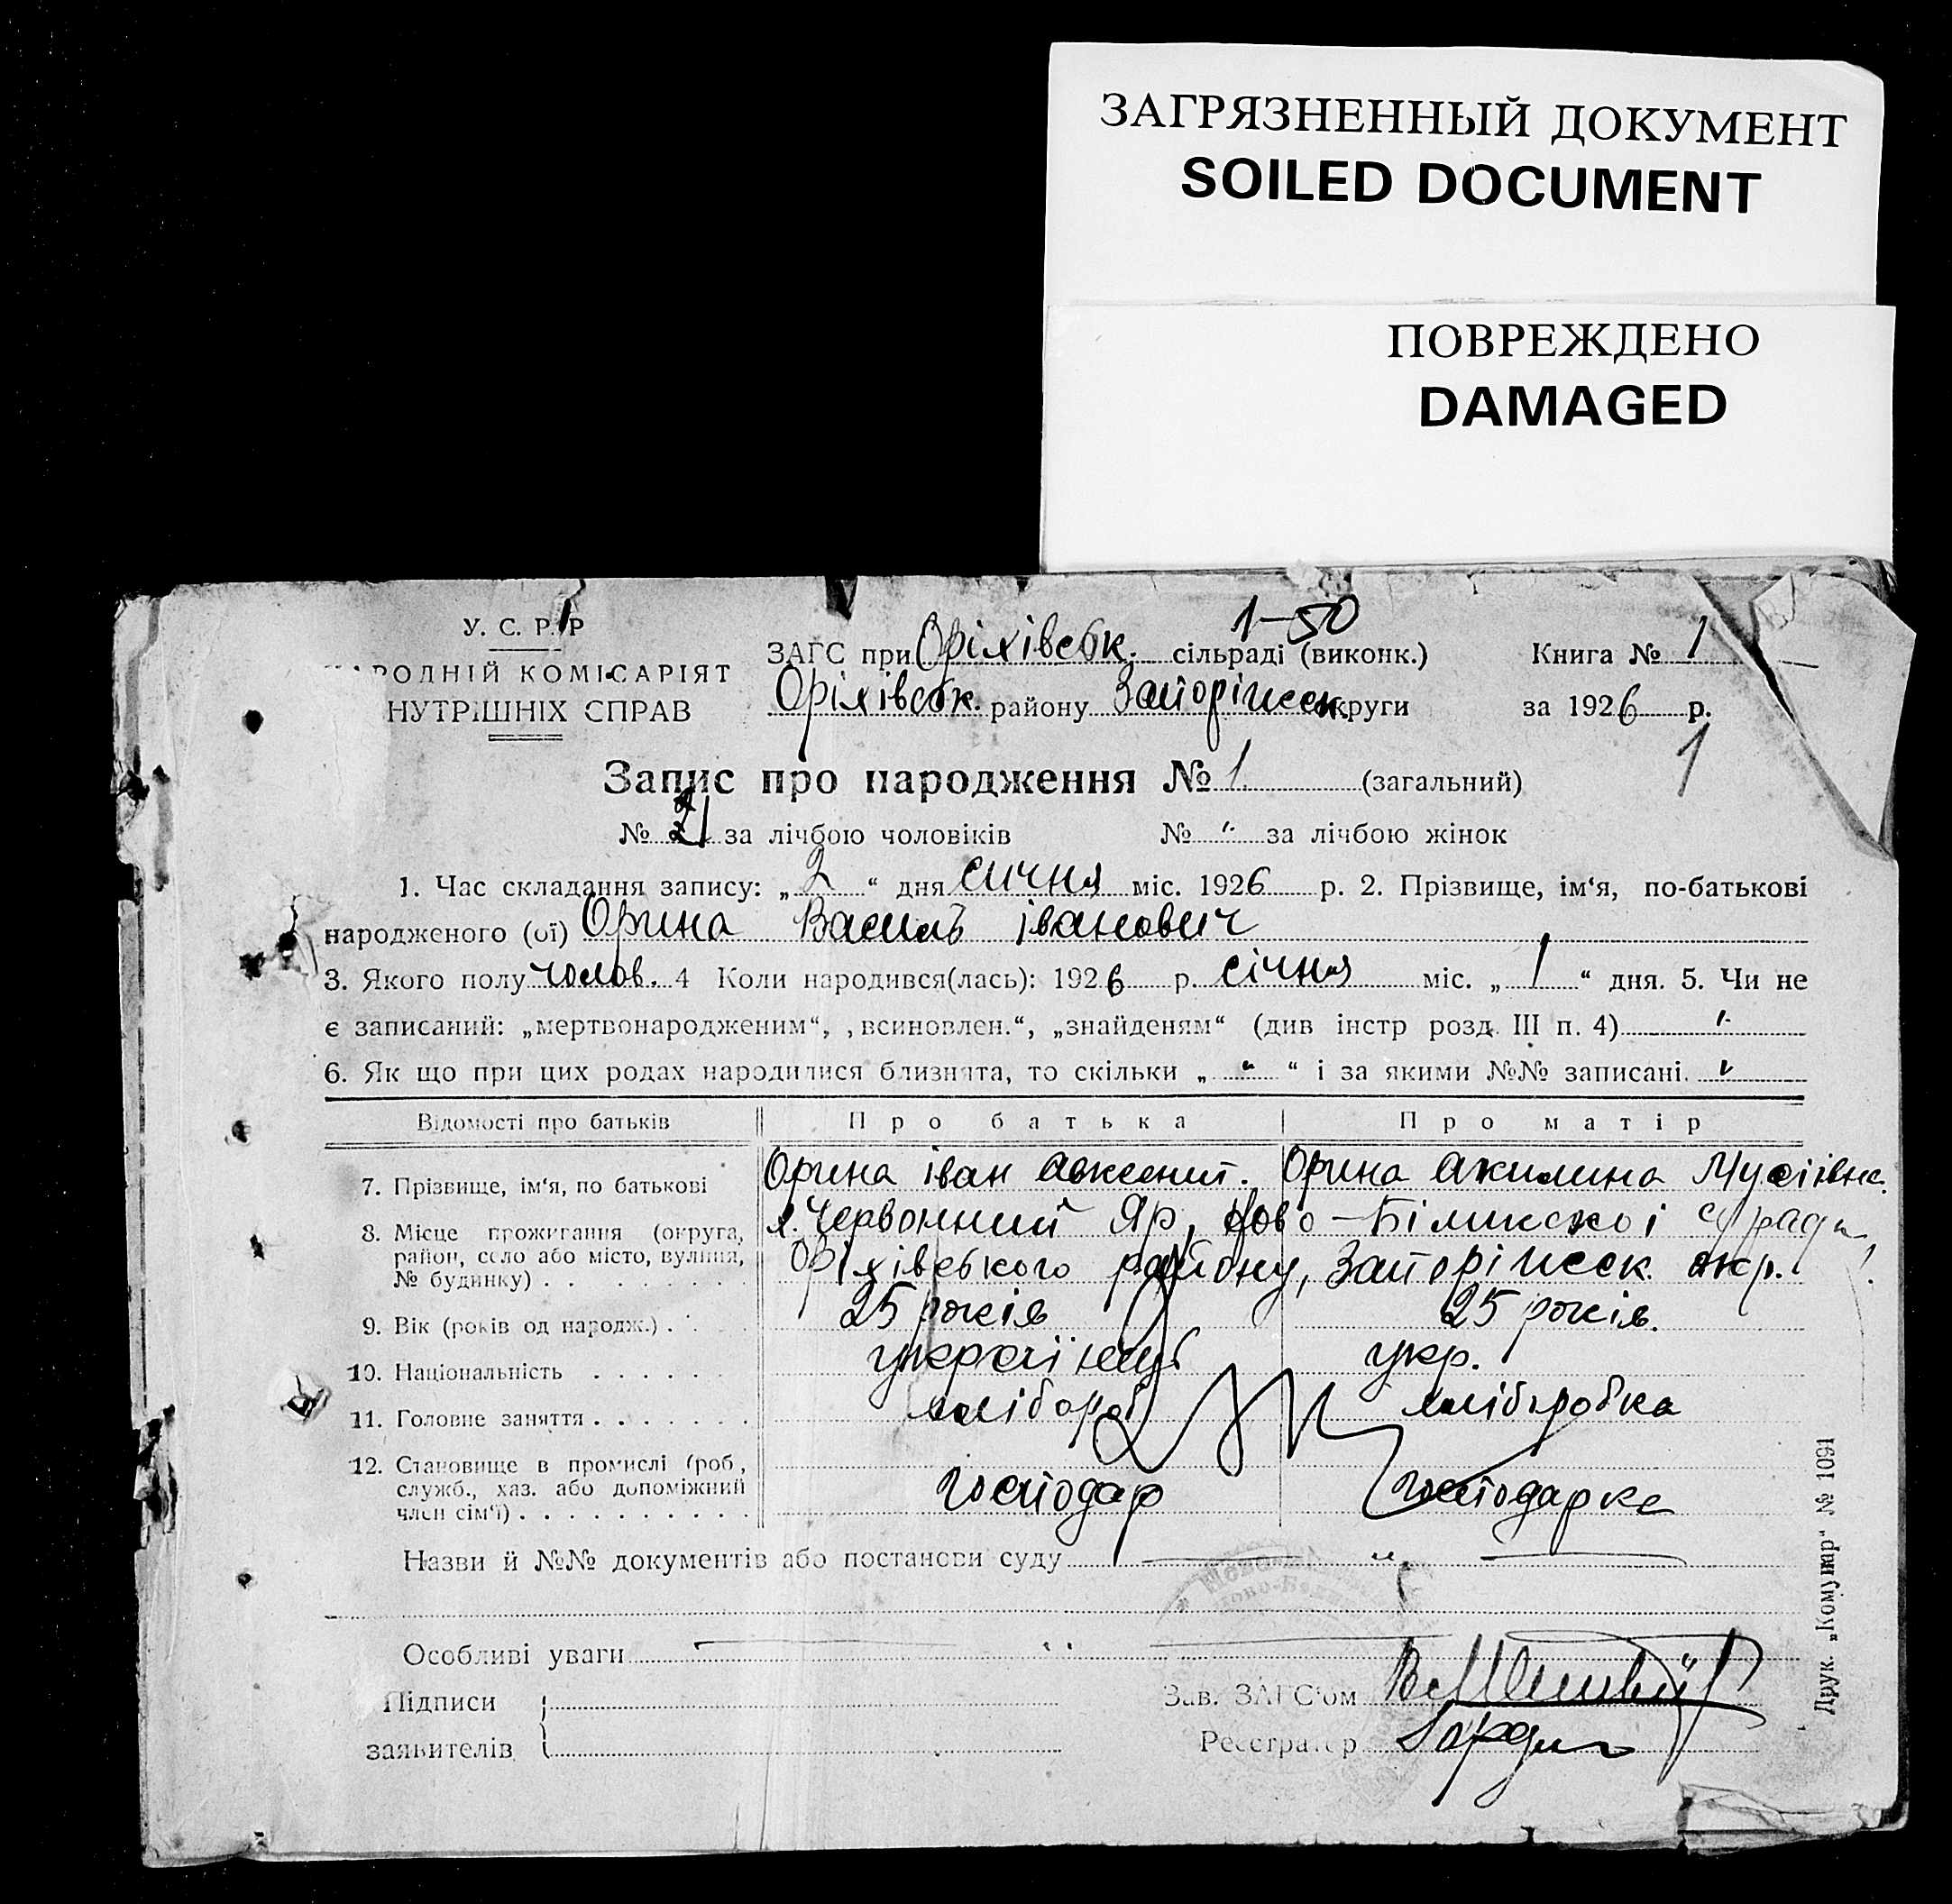 ЗАГРЯЗНЕННЫЙ ДОКУМЕНТ
SOILED DOCUMENT
ПОВРЕЖДЕНО
DAMAGED
1-50
У. С. Р. Р
РОДНІЙ КОМІСАРІЯТ
НУТРІШНІХ СПРАВ
ЗАГС при Оріхівськ. сільраді (виконк.) Книга № 1
Оріхівськ. району Запоріжськ. округи за 1926 р.
1
Запис про народження № 1. (загальний)
№ 1 за лічбою чоловіків № " за лічбою жінок
1. Час складання запису: „ 2 “ дня сичня міс. 1926 р. 2. Прізвище, ім‘я, по-батькові
народженого (ої) Орина Василь Іванович
3. Якого полу чолов. 4 Коли народився(лась): 1926 р. січня міс. „ 1 “ дня. 5. Чи не
є записаний: „мертвонародженим“, „всиновлен.“, „знайденям“ (див інстр розд. III п. 4) "
6. Як що при цих родах народилися близнята, то скільки „ " “ і за якими №№ записані. "
Відомості про батьків Про батька Про матір
7. Прізвище, ім‘я, по батькові Орина Іван Авксент. Орина Акилина Мусіівна.
8. Місце проживання (округа, район, село або місто, вулиця, № будинку) х. Червонний Яр, Ново-Біликскоі с/ради,
Оріхівського району, Запоріжськ. окр.
9. Вік (років од народж.) 25 років 25 років.
10. Національність українець укр.
11. Головне заняття хлібороб хліборобка
12. Становище в промислі (роб., служб., хаз. або допоміжний член сім‘ї) господар господарка
Назви й №№ документів або постанови суду — " —
Особливі уваги — " —
Підписи
заявителів
Зав. ЗАГС‘ом
Реєстратор
Друк. „Комунар“ № 1091